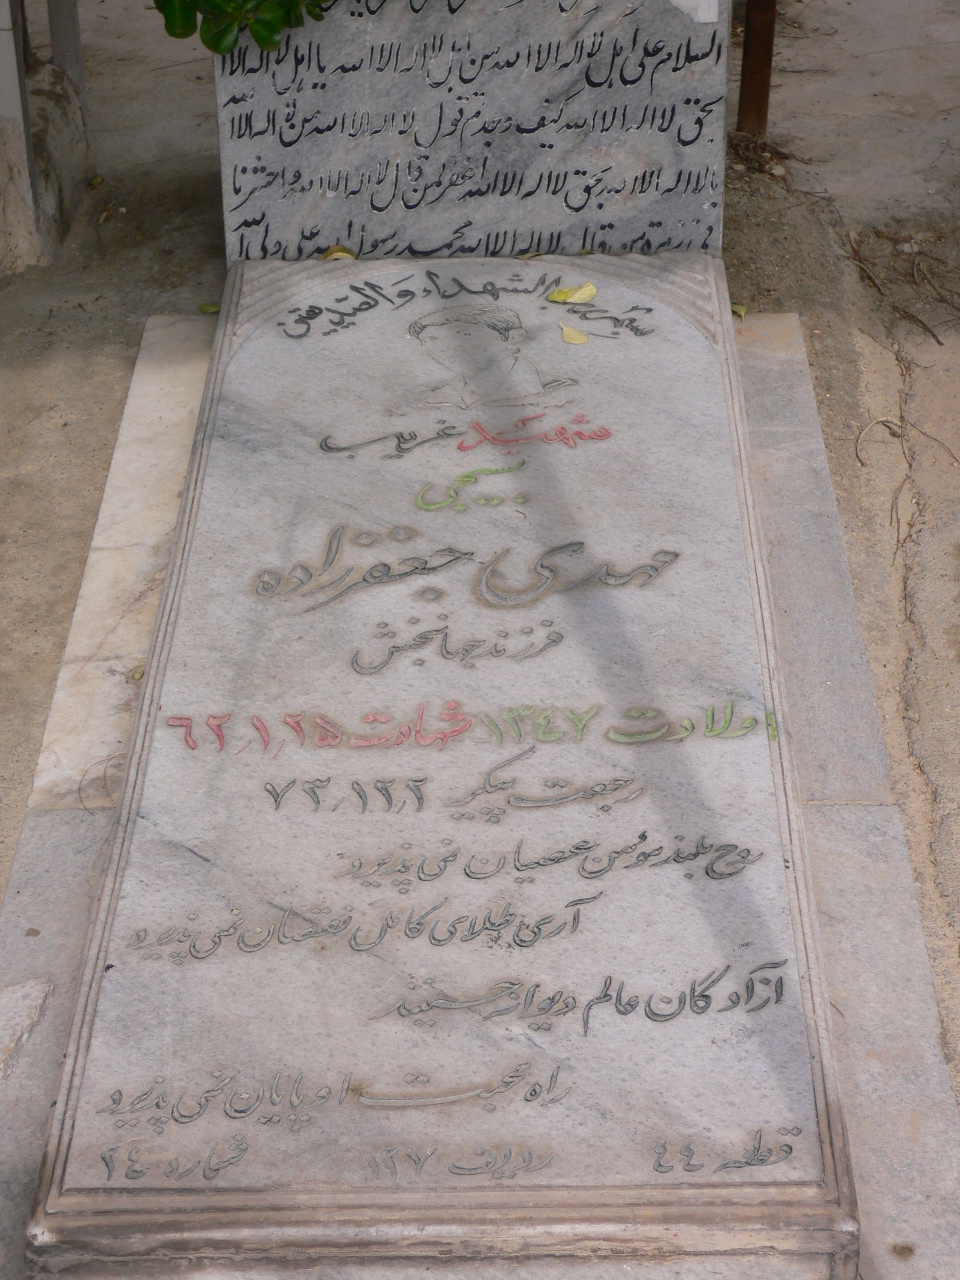 السلام علی اهل لا اله الا الله من اهل لا اله الا الله یا اهل لا اله الا
الله بحق لا اله الا الله کیف وجدتم قول لا اله الا الله من لا اله الا
الله یا لا اله الا الله بحق لا اله الا الله اغفر لمن قال لا اله الا الله واحشرنا
فی زمرة من قال لا اله الا الله محمد رسول الله علی ولی الله
الشهداء والصدیقین
شهید غریب
بسیجی
مهدی جعفرزاده
فرزند جهانبخش
ولادت ۱۳٤۷ شهادت ۶۲٫۱٫۲۵
رجعت پیکر ۷۳٫۱۲٫۲
روح بلند مومن عصیان نمی پذیرد
آری طلای کامل نقصان نمی پذیرد
آزادگان عالم
راه محبت او پایان نمی پذیرد
قطعه ٤٤ ردیف ۱۲۷ شماره ۲٤